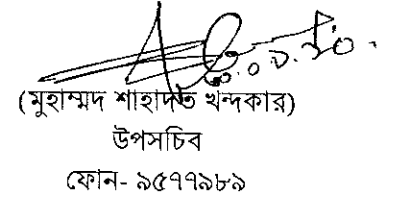 (মুহাম্মদ শাহাদত খন্দকার)
উপসচিব
ফোন- ৯৫৭৭৯৮৯